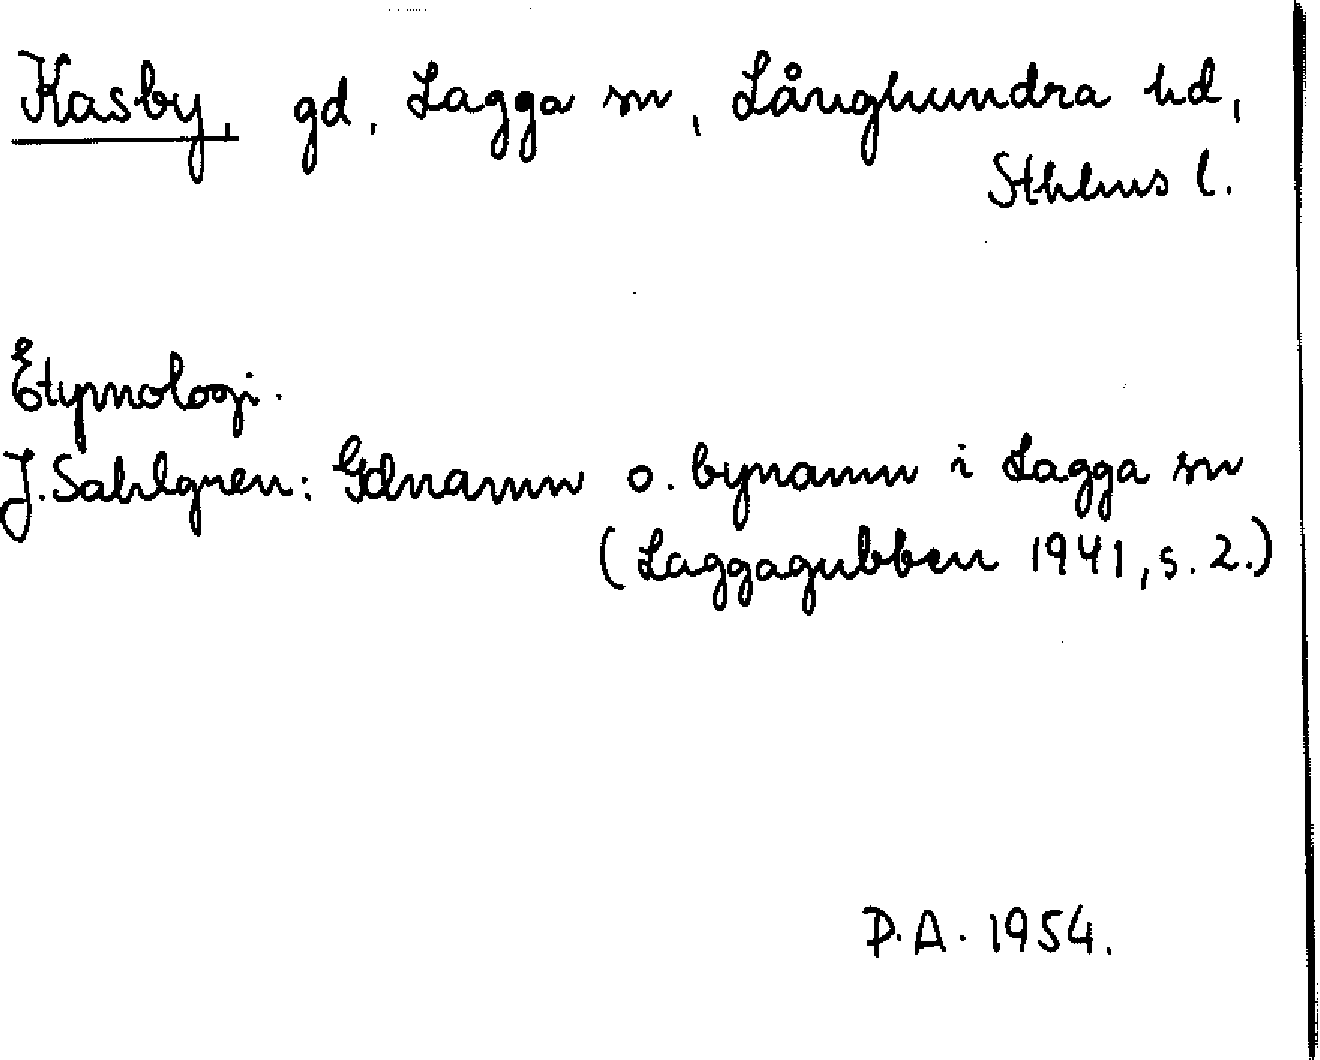 Kasby, gd, Lagga sn, Långhundra hd,
Sthlms l.
Etymologi.
J. Sahlgren: Gdnamn o. bynamn i Lagga sn
(Laggagubben 1941, s. 2.)
P.A. 1954.